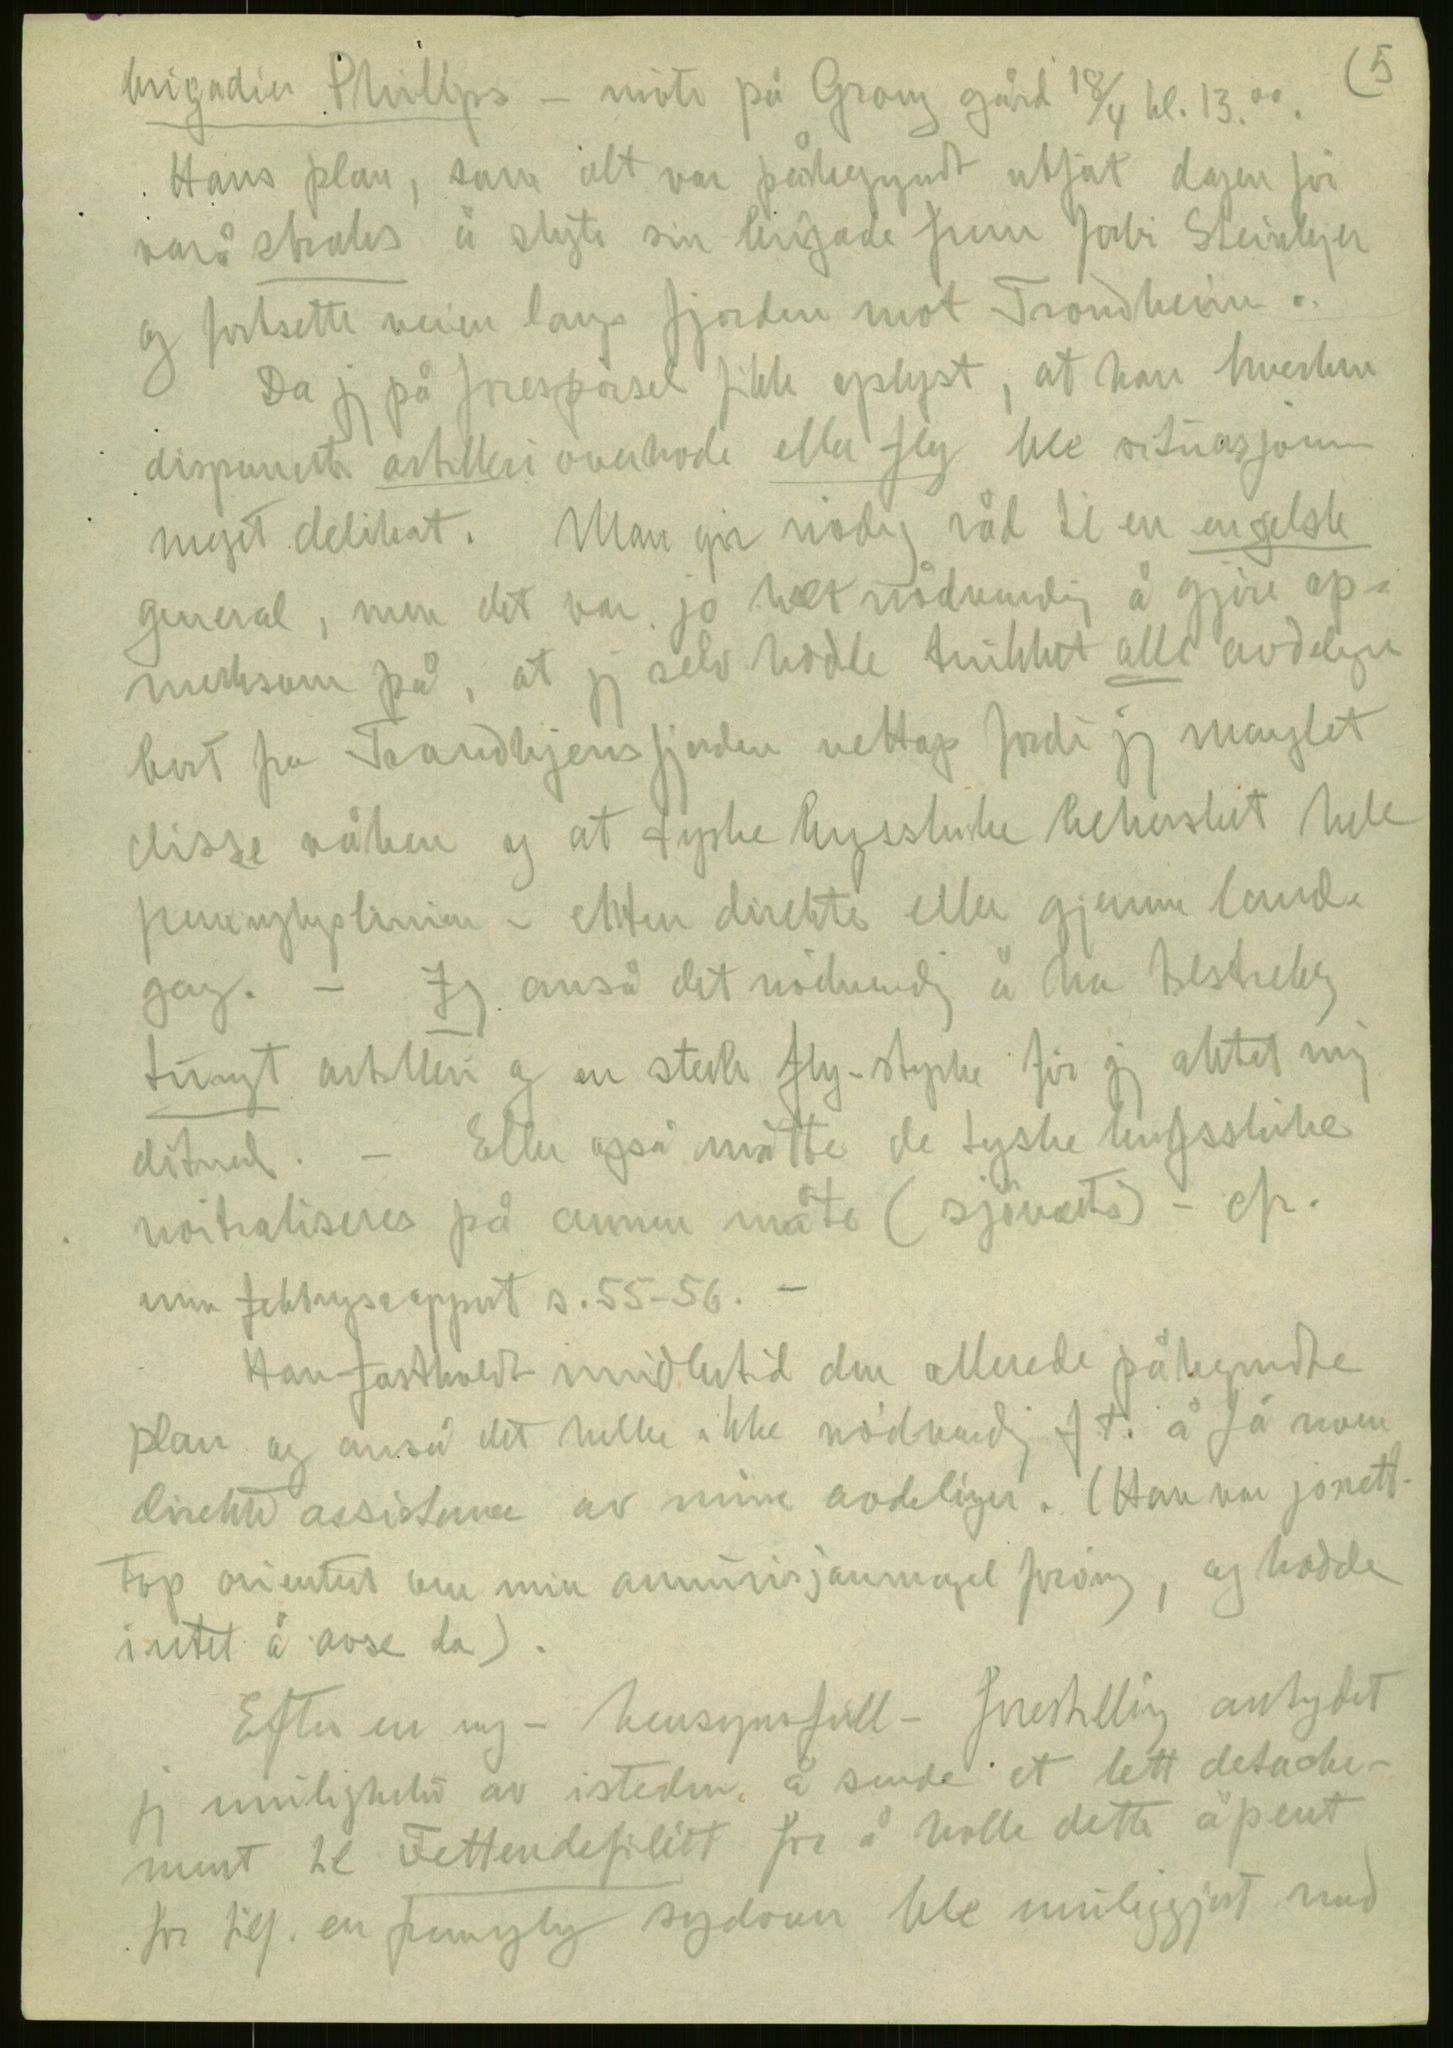 (5
brigadier Phillips – möte på Grong gård 18/4 kl. 13.00.
Hans plan, som alt var påbegyndt utført dagen för
var å straks å skyte sin brigade frem forbi Steinkjer
og fortsette veien langs fjorden mot Trondheim.
Da jeg på forespörsel fikk oplyst, at han hverken
disponerte artilleri overhode eller fly ble situasjonen
meget delikat. Man gir nödig råd til en engelsk
general, men det var jo helt nödvendig å gjöre op-
merksom på, at jeg selv hadde trukket alle avdelinger
bort fra Trondhjemsfjorden nettop fordi jeg manglet
disse våben og at tyske krysstukke behersket hele
fremrykningslinien – enten direkte eller gjennem land-
gang. – Jeg anså det nödvendig å ha tilstrekkelig
tungt artilleri og en sterk fly-styrke för jeg aktet mig
ditned. – Eller også måtte de tyske
nöitraliseres på annen måte (sjöværts) – cfr.
min feltrapport s. 55-56. –
Han fastholdt imidlertid den allerede påbegyndte
plan og anså det heller ikke nödvendig f.t. å få noen
direkte assistanse av mine avdelinger. (Han var jo nett-
top orientert om min ammunisjonmangel forövrig, og hadde
intet å avse da).
Efter en ny – hensynsfull – forestilling antydet
jeg muligheten av isteden å sende et lett detache-
ment til Fettendefiléet for å holde dette åpent
for tilf. en fremrykning sydover ble muliggjort med